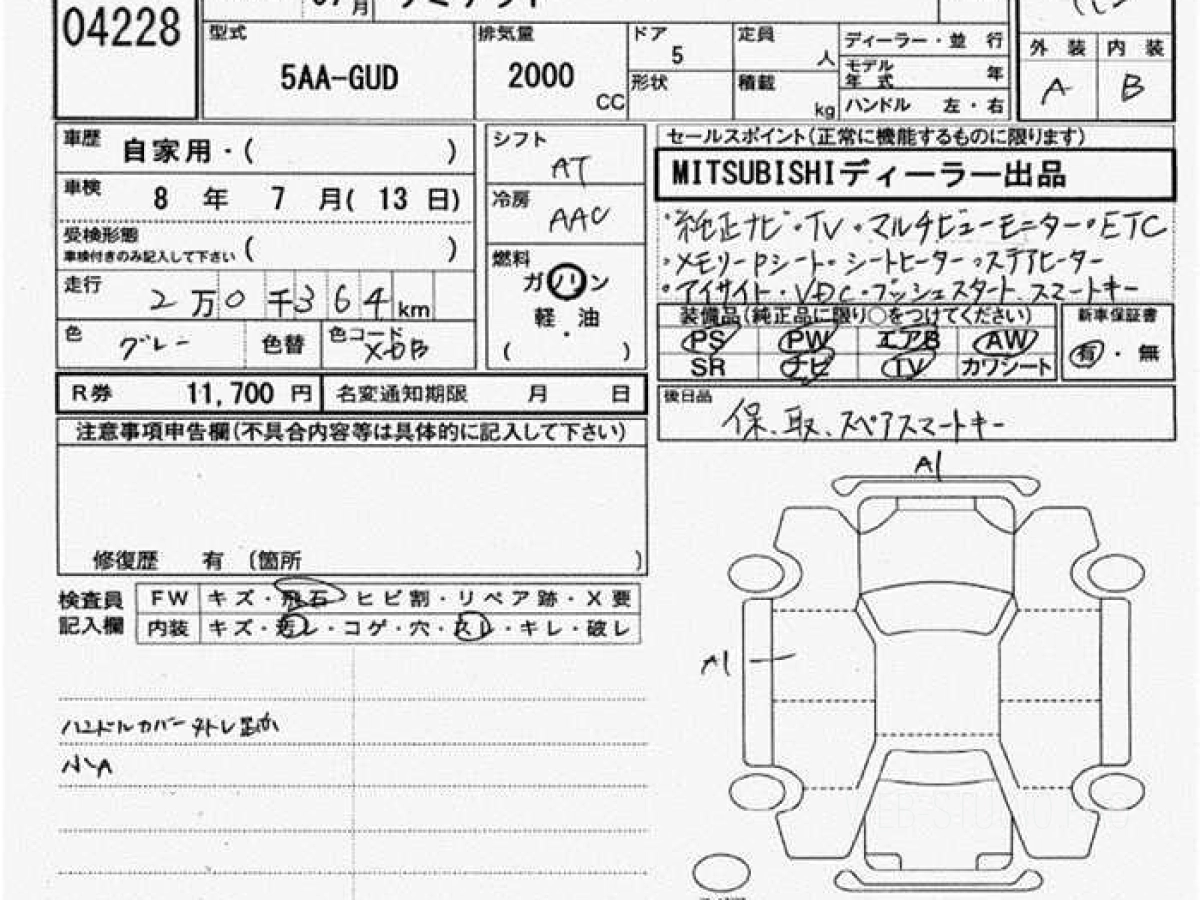 04228
型式 5AA-GUD
排気量 2000 CC
ドア 5
形状
定員 人
積載 kg
ディーラー・並 行
モデル年式 年
ハンドル 左・右
外 装 内 装
A B
車歴 自家用・( )
車検 8 年 7 月( 13 日)
受検形態
車検付きのみ記入して下さい ( )
走行 2万0千364km
色 グレー 色替 色コード XDB
シフト AT
冷房 AAC
燃料
ガソリン
軽・油
( )
セールスポイント(正常に機能するものに限ります)
MITSUBISHIディーラー出品
・純正ナビ・TV・マルチビューモニター・ETC
・メモリーPシート・シートヒーター・ステアヒーター
・アイサイト・VDC・プッシュスタート、スマートキー
装備品(純正品に限り○をつけてください)
PS PW エアB AW
SR ナビ TV カワシート
新車保証書
有・無
R券 11,700 円 名変通知期限 月 日
後日品 保、取、スペアスマートキー
注意事項申告欄(不具合内容等は具体的に記入して下さい)
修復歴 有 〔箇所 〕
検査員
記入欄
FW キズ・飛石・ヒビ割・リペア跡・X要
内装 キズ・汚レ・コゲ・穴・スレ・キレ・破レ
ハンドルカバー外し跡
小A
A1
A1